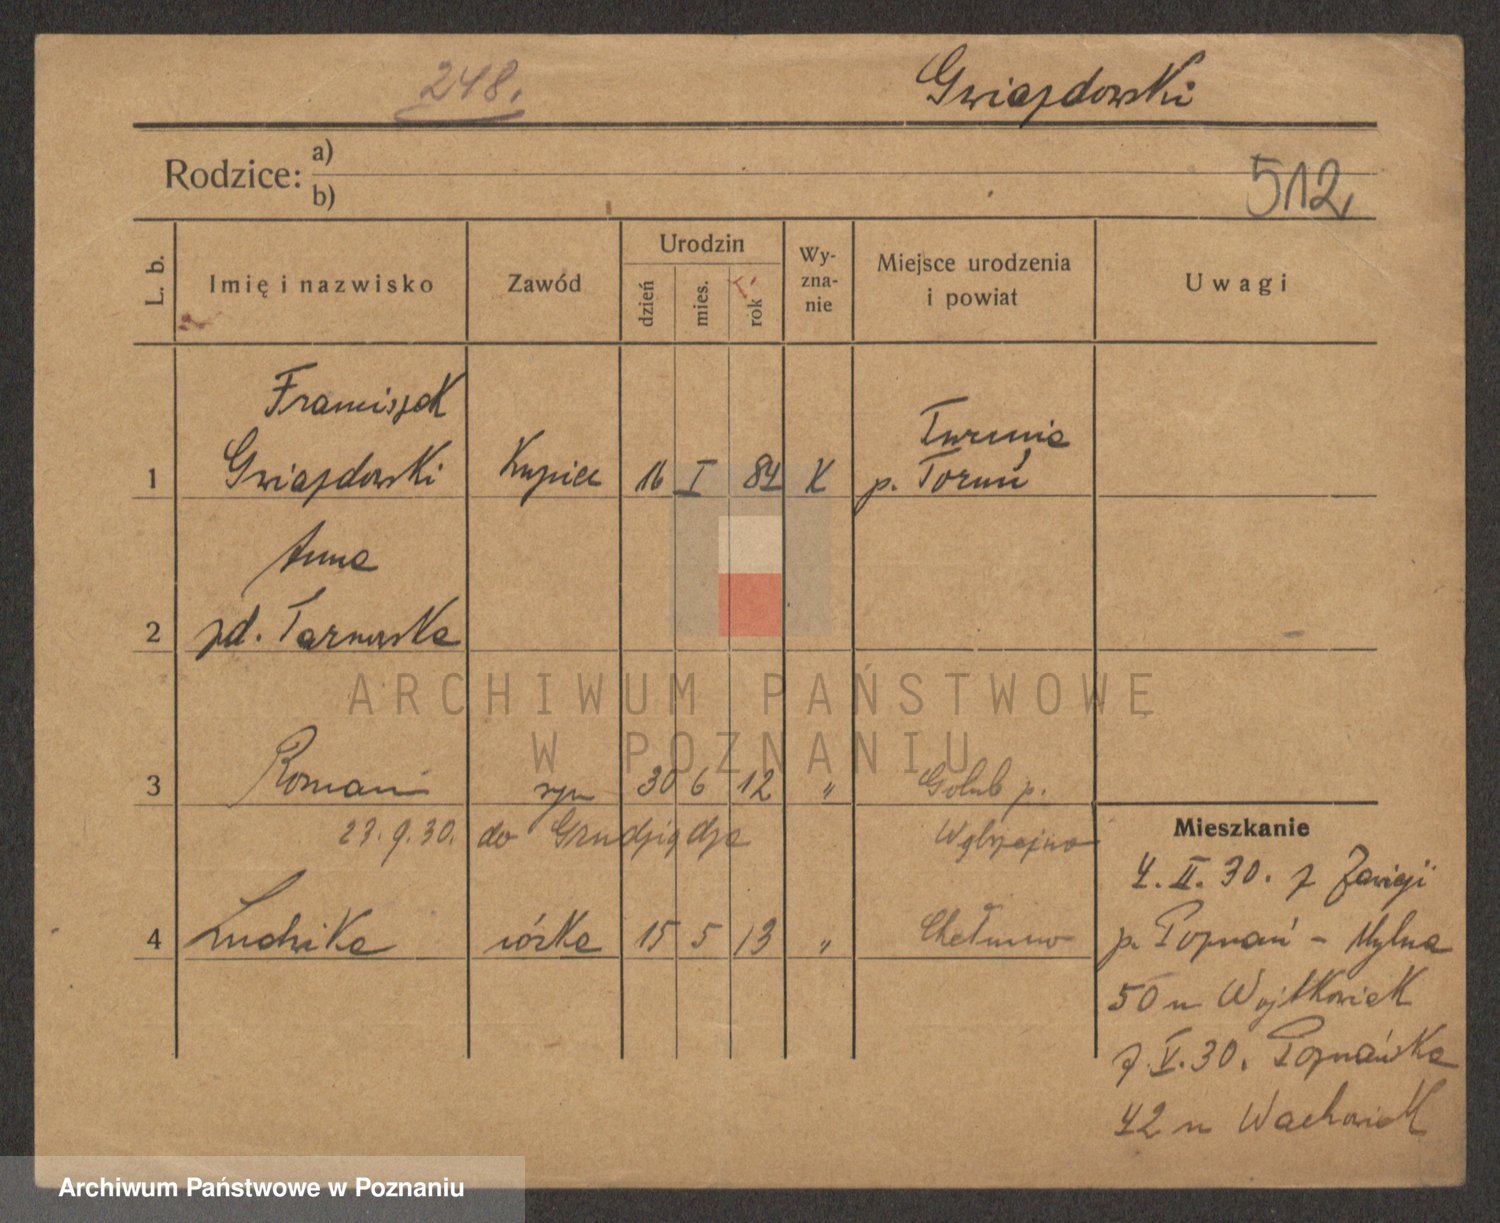 248.
Gwiazdowski
Rodzice: a)
b)
512,
L. b.
Imię i nazwisko
Zawód
Urodzin
dzień
mies.
rok
Wy-
zna-
nie
Miejsce urodzenia
i powiat
Uwagi
Franciszek
1 Gwiazdowski Kupiec 16 I 84 K
p. Toruń
Anna
2 zd. Tarnowska
ARCHIWUM PAŃSTWOWE
W POZNANIU
3 Roman syn 30 6 12 " Golub p.
23.9.30. do Grudziądza
Wąbrzeźno
4 Ludwika córka 15 5 13 " Chełmno
Mieszkanie
4. II. 30. z
p. Poznań - Mylna
50 u Wojtkowiak
7. V. 30. Poznańska
42 u Wachowiak
Archiwum Państwowe w Poznaniu